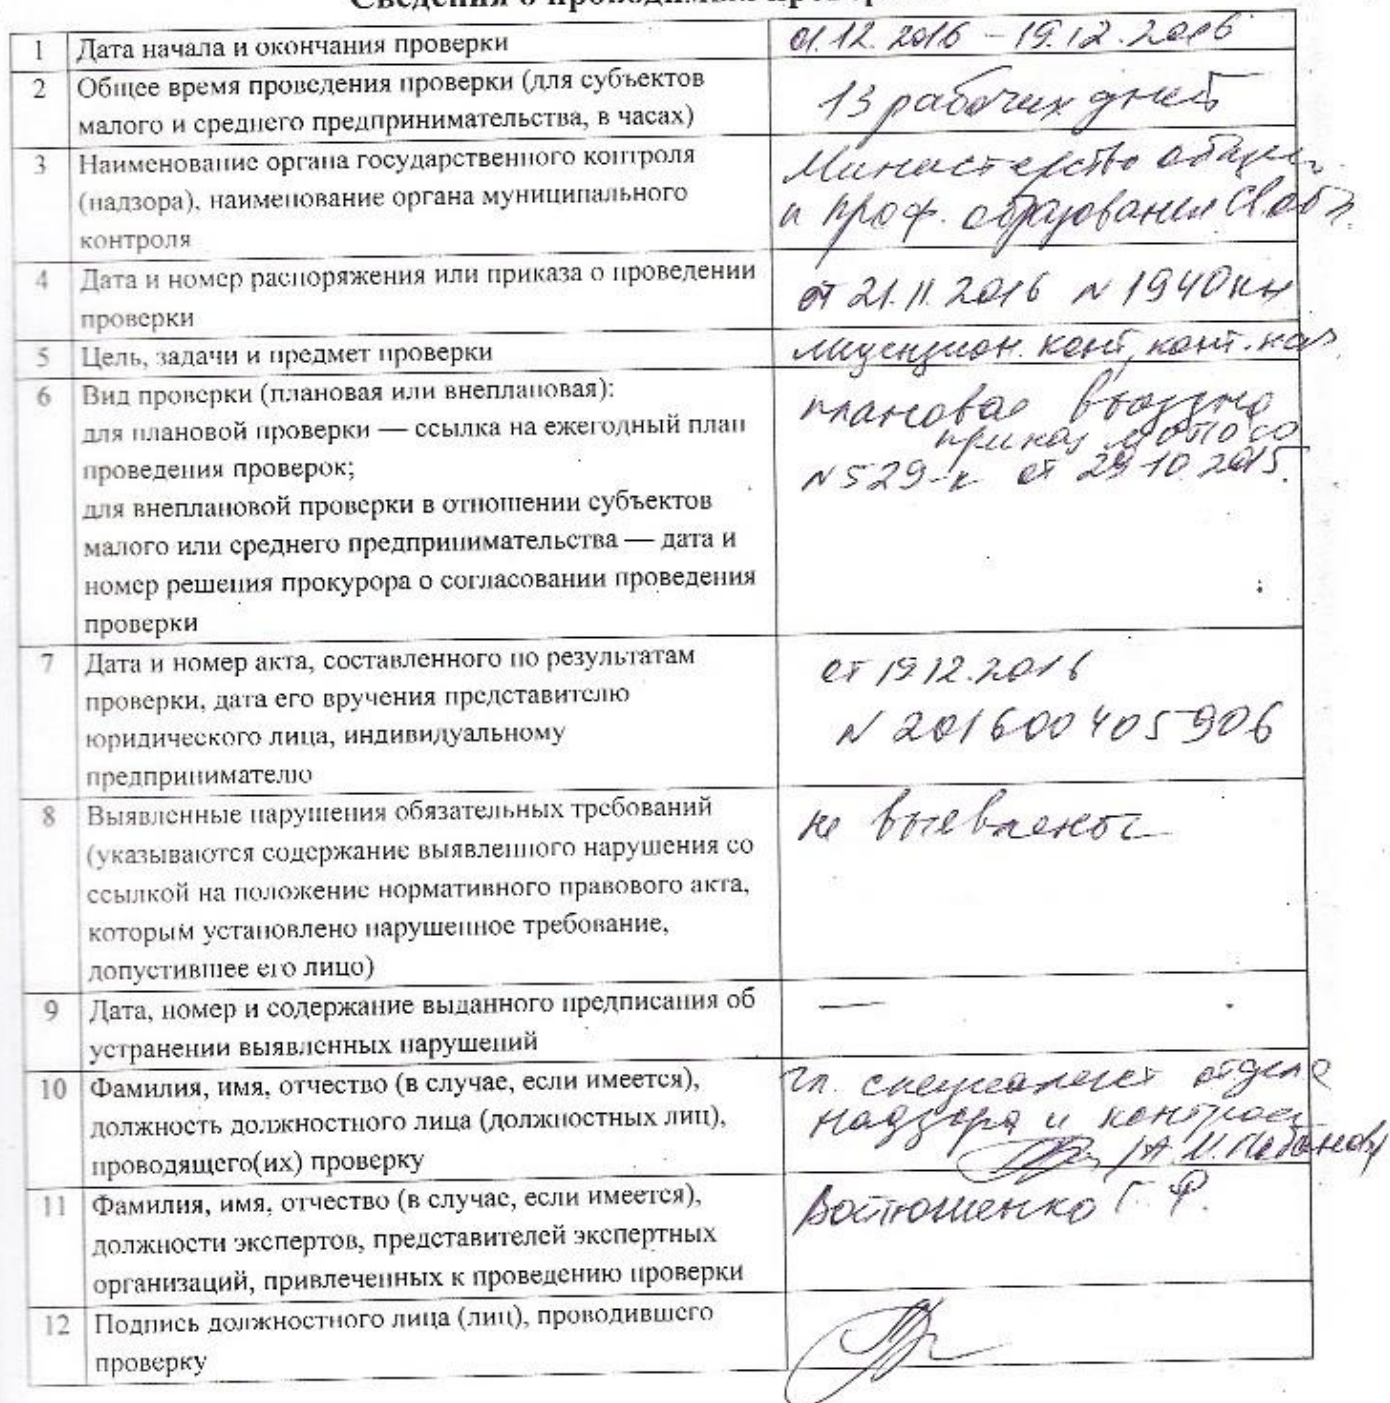 Сведения о проводимых проверках
1 Дата начала и окончания проверки 01.12.2016 – 19.12.2016
2 Общее время проведения проверки (для субъектов
малого и среднего предпринимательства, в часах)
13 рабочих дней
3 Наименование органа государственного контроля
(надзора), наименование органа муниципального
контроля
Министерство общего
и проф. образования Св. обл.
4 Дата и номер распоряжения или приказа о проведении
проверки
от 21.11.2016 № 1940кн
5 Цель, задачи и предмет проверки лицензион. конт, конт.
6 Вид проверки (плановая или внеплановая):
для плановой проверки — ссылка на ежегодный план
проведения проверок;
для внеплановой проверки в отношении субъектов
малого или среднего предпринимательства — дата и
номер решения прокурора о согласовании проведения
проверки
плановая
приказ МОПО СО
№ 529-к от 29.10.2015.
7 Дата и номер акта, составленного по результатам
проверки, дата его вручения представителю
юридического лица, индивидуальному
предпринимателю
от 19.12.2016
№ 201600405906
8 Выявленные нарушения обязательных требований
(указываются содержание выявленного нарушения со
ссылкой на положение нормативного правового акта,
которым установлено нарушенное требование,
допустившее его лицо)
не выявлены
9 Дата, номер и содержание выданного предписания об
устранении выявленных нарушений
—
10 Фамилия, имя, отчество (в случае, если имеется),
должность должностного лица (должностных лиц),
проводящего(их) проверку
гл. специалист отдела
надзора и контроля
/А.И.
11 Фамилия, имя, отчество (в случае, если имеется),
должности экспертов, представителей экспертных
организаций, привлеченных к проведению проверки
Г. Ф.
12 Подпись должностного лица (лиц), проводившего
проверку